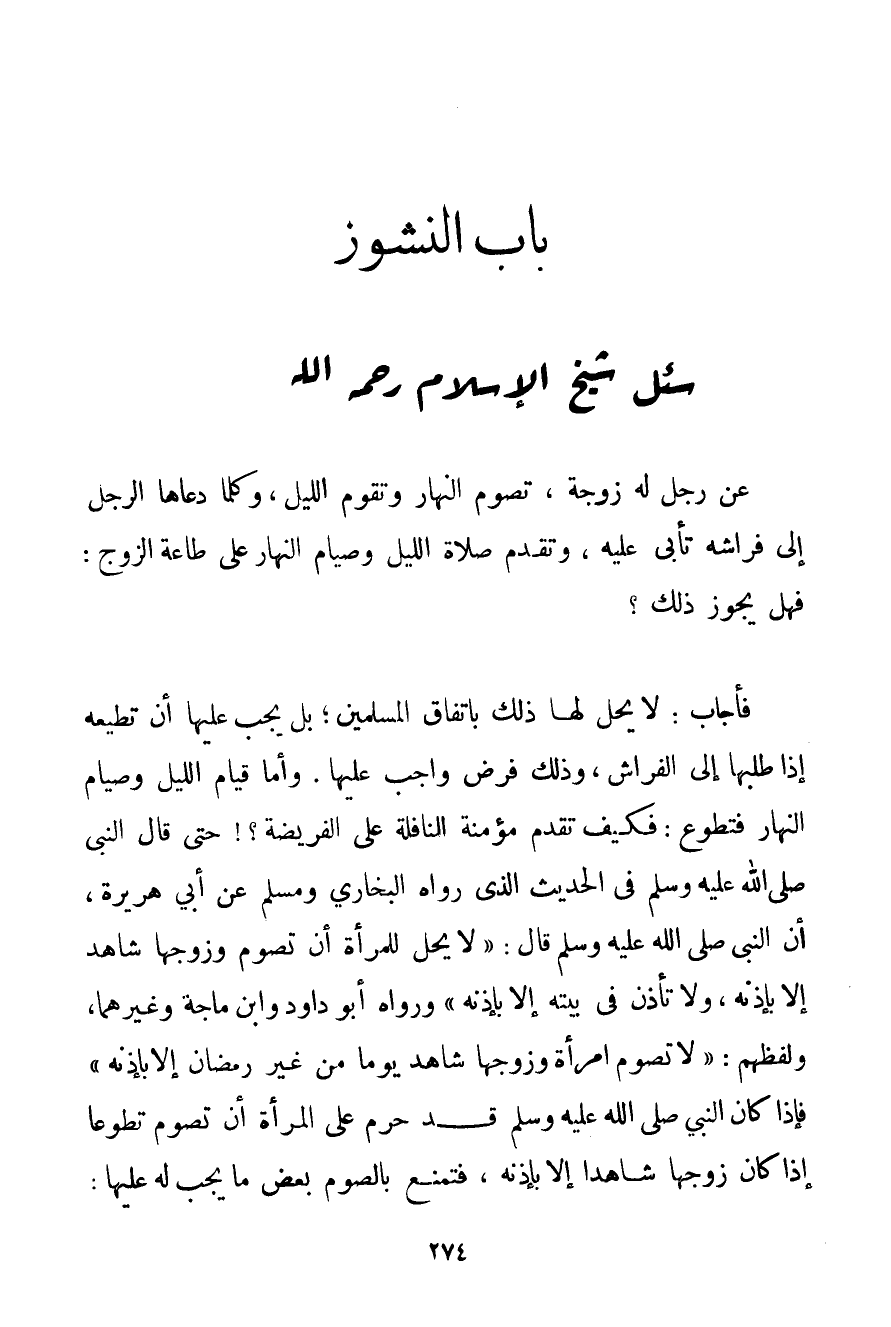 باب النشوز
سئل شيخ الإسلام رحمه الله
عن رجل له زوجة ، تصوم النهار وتقوم الليل ، وكلما دعاها الرجل
إلى فراشه تأبى عليه ، وتقدم صلاة الليل وصيام النهار على طاعة الزوج :
فهل يجوز ذلك ؟
فأجاب : لا يحل لها ذلك باتفاق المسلمين ؛ بل يجب عليها أن تطيعه
إذا طلبها إلى الفراش ، وذلك فرض واجب عليها . وأما قيام الليل وصيام
النهار فتطوع : فكيف تقدم مؤمنة النافلة على الفريضة ؟ ! حتى قال النبى
صلى الله عليه وسلم فى الحديث الذى رواه البخاري ومسلم عن أبي هريرة ،
أن النبى صلى الله عليه وسلم قال : « لا يحل للمرأة أن تصوم وزوجها شاهد
إلا بإذنه ، ولا تأذن فى بيته إلا بإذنه » ورواه أبو داود وابن ماجة وغيرهما،
ولفظهم : « لا تصوم امرأة وزوجها شاهد يوما من غير رمضان إلا بإذنه »
فإذا كان النبي صلى الله عليه وسلم قد حرم على المرأة أن تصوم تطوعا
إذا كان زوجها شاهدا إلا بإذنه ، فتمنع بالصوم بعض ما يجب له عليها :
٢٧٤